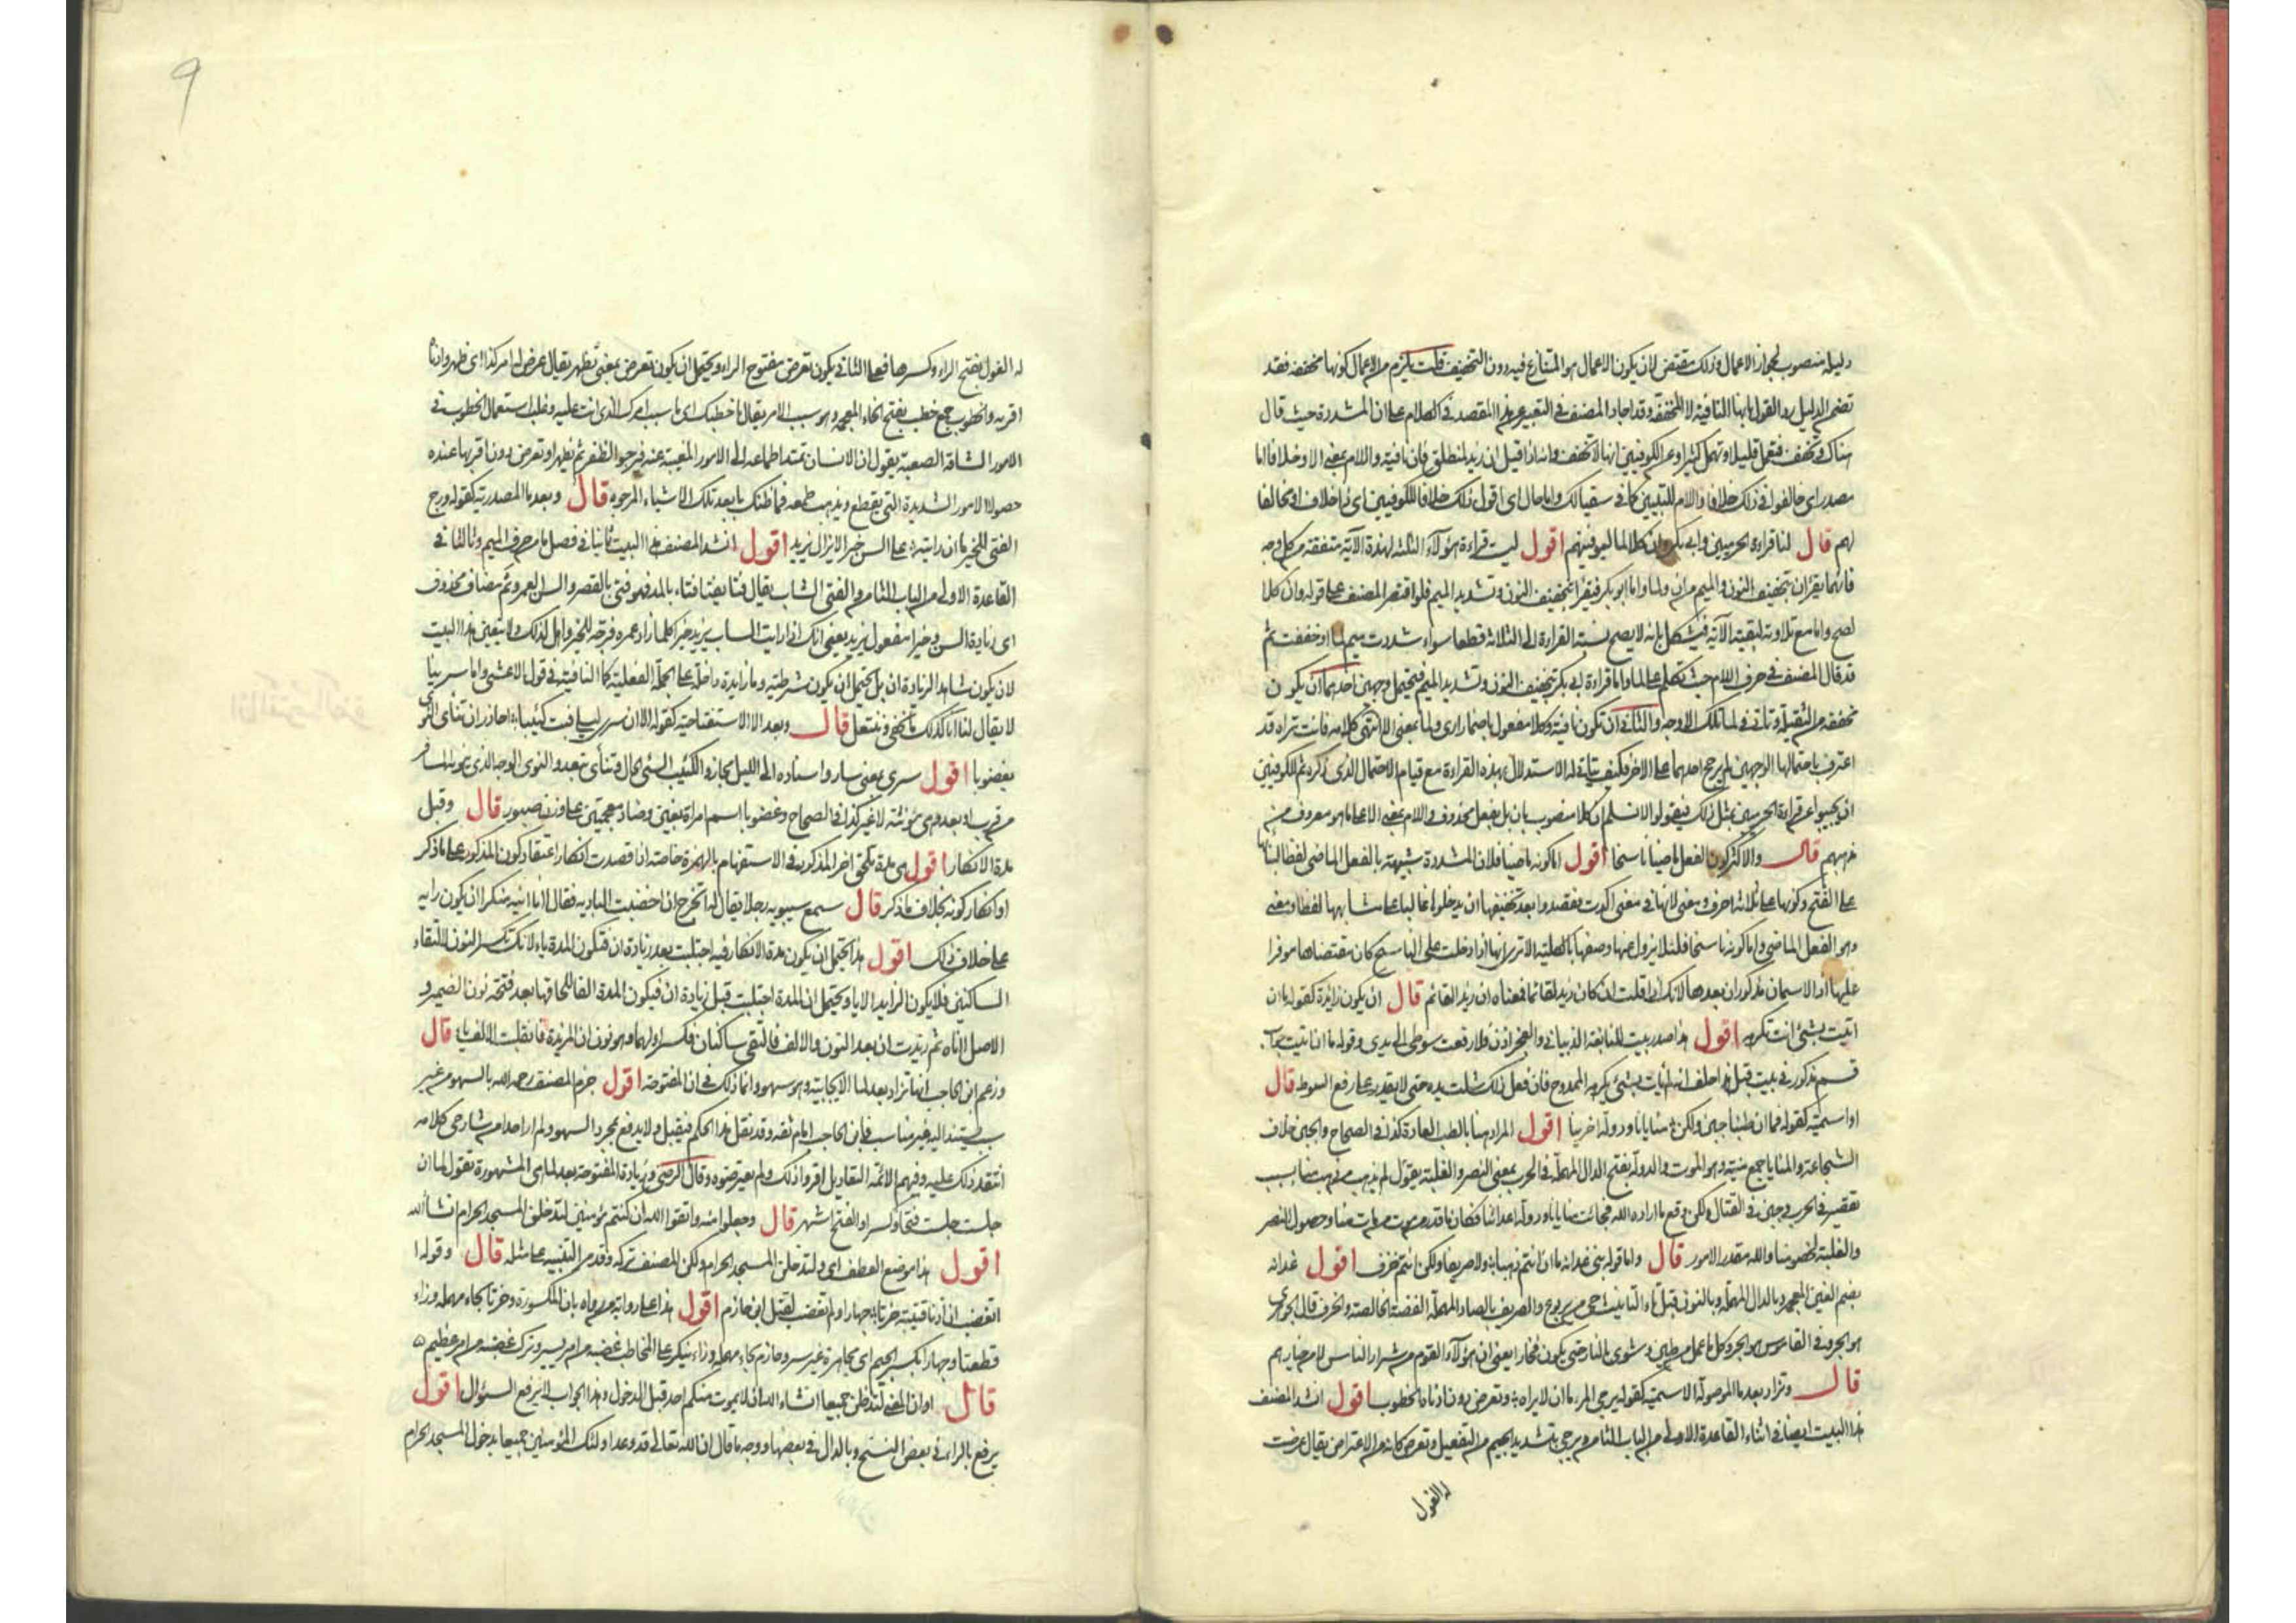 دليله منصوب لجواز الاعمال وذلك مقتض لان يكون الاعمال هو المتنازع فيه دون التخفيف قلت يلزم من الاعمال كونها مخففة فقد
تضمن الدليل رد القول بانها النافية لا المخففة وقد اجاد المصنف في التعبير عن هذا المقصد في الكلام على ان المشددة حيث قال
هناك وتخفف فتعمل قليلا وتهمل كثيرا وعن الكوفيين انها لا تخفف وانه اذا قيل ان زيد لمنطلق فان نافية واللام بمعنى الا وخلافا اما
مصدر اي خالفوا في ذلك خلافا واللام للتبيين كما في سقيا لك واما حال اي اقول ذلك خلافا للكوفيين اي ذا خلاف او مخالفا
لهم قال لنا قراءة الحرميين وابي بكر وان كلا لما ليوفينهم اقول ليت قراءة هؤلاء الثلثة لهذة الآية متفقة من كل وجه
فانهما يقرآن بتخفيف النون والميم من ان ولما واما ابو بكر فيقرأ بتخفيف النون وتشديد الميم فلو اقتصر المصنف على قوله وان كلا
لصح واما مع تلاوته لبقية الآية فيشكل بانه لا يصح نسبة القراءة الى الثلاثة قطعا سواء شددت ميم لما او خففت ثم
قد قال المصنف في حرف اللام حيث تكلم على لما واما قراءة ابي بكر بتخفيف النون وتشديد الميم فتحتمل وجهين احدهما ان يكون
مخففة من الثقيلة وتاتي في لما تلك الاوجه والثاني ان تكون نافية وكلا مفعول باضمار ارى ولما بمعنى الا انتهى كلامه فانت تراه قد
اعترف باحتمالها الوجهين ولم يرجح احدهما على الاخر فكيف يتاتى له الاستدلال بهذه القراءة مع قيام الاحتمال الذي ذكره ثم للكوفيين
ان يجيبوا عن قراءة الحرميين بمثل ذلك فيقولوا لا نسلم ان كلا منصوب بان بل بفعل محذوف واللام بمعنى الا على ما هو معروف من
مذهبهم قال والاكثر كون الفعل ماضيا ناسخا اقول اما كونه ماضيا فلان المشددة شبيهة بالفعل الماضي لفظا لبنائها
على الفتح وكونها على ثلاثة احرف ومعنى لانها في معنى اكدت فقصدوا بعد تخفيفها ان يدخلوها غالبا على ما شابهها لفظا ومعنى
وهو الفعل الماضي واما كونه ناسخا فلئلا يزول عنها وضعها بالكلية الا ترى انها اذا دخلت على الناسخ كان مقتضاها موفرا
عليها اذ الاسمان مذكوران بعدها لانك اذا قلت ان كان زيد لقائما فمعناه ان زيدا لقائم قال ان يكون زائدة كقوله ما ان
اتيت بشئ انت تكرهه اقول هذا صدر بيت للنابغة الذبياني والعجز اذن فلا رفعت سوطي الى يدي وقوله ما ان اتيت جواب
قسم مذكور في بيت قبل هذا حلف انه لم يات بشئ يكرهه الممدوح فان فعل ذلك شلت يده حتى لا يقدر على رفع السوط قال
او اسمية كقوله فما ان طبنا جبن ولكن منايانا ودولة اخرينا اقول المراد هنا بالطب العادة كذا في الصحاح والجبن خلاف
الشجاعة والمنايا جمع منية وهو الموت والدولة بفتح الدال المهملة في الحرب بمعنى النصر والغلبة يقول لم يذهب من ذهب منا بسبب
تقصير في الحرب وجبن في القتال ولكن وقع ما اراده الله فجائت منايانا ودولة اعدائنا فكان ما قدر من موت من مات منا وحصول النصر
والغلبة لخصومنا والله مقدر الامور قال واما قوله بني غدانة ما ان انتم ذهبا ولا صريفا ولكن انتم خزف اقول غدانة
بضم الغين المعجمة وبالدال المهملة وبالنون قبل تاء التانيث حي من يربوع والصريف بالصاد المهملة الفضة الخالصة والخزف قال الجوهري
هو الجر وفي القاموس هو الجر وكل ما عمل من طين وشوي بالنار حتى يكون فخارا يعني ان هؤلاء القوم من شرار الناس لا من خيارهم
قال وتزاد بعد ما الموصولة الاسمية كقوله يرجي المرء ما ان لا يراه وتعرض دون ادناه الخطوب اقول انشد المصنف
هذا البيت ايضا في اثناء القاعدة الاولى من الباب الثامن ويرجي بتشديد الجيم من التفعيل وتعرض كانه من الاعتراض يقال عرضت
له الغول
9
له الغول بفتح الراء وكسرها فعلى الثاني يكون تعرض مفتوح الراء ويحتمل ان يكون تعرض بمعنى تظهر يقال عرض له امر كذا اي ظهر وادناه
اقربه والخطوب جمع خطب بفتح الخاء المعجمة وهو سبب الامر يقال ما خطبك اي ما سبب امرك الذي انت عليه وغلب استعمال الخطوب في
الامور الشاقة الصعبة يقول ان الانسان تمتد اطماعه الى الامور المغيبة عنه فيرجو الظفر ثم تظهر او تعرض دون اقربها عنده
حصولا الامور الشديدة التي يقطع ويذهب طمعه فما ظنك بابعد تلك الاشياء المرجوة قال وبعد ما المصدرية كقوله ورج
الفتى للخير ما ان رايته على السن خيرا لا يزال يزيد اقول انشد المصنف هذا البيت ثانيا في فصل ما من حرف الميم وثالثا في
القاعدة الاولى من الباب الثامن والفتى الشاب يقال فتا يفتا فتاء بالمد فهو فتى بالقصر والسن العمر وثم مضاف محذوف
اي زيادة السن وخيرا مفعول يزيد يعني انك اذا رايت الشاب يزيد خيرا كلما زاد عمره فرجه للخير واهل لذلك ولا يتعين هذا البيت
لان يكون شاهدا لزيادة ان بل يحتمل ان يكون شرطية وما زايدة داخلة على الجملة الفعلية كما النافية في قول الاعشى واما سر بينا
لا يقال لنا انا كذلك ما نحفى وننتعل قال وبعد الا الاستفتاحية كقوله الا ان سرى ليلي فبت كئيبا احاذر ان تنأى النوى
بغضوبا اقول سرى بمعنى سار واسناده الى الليل مجاز والكئيب السئ الحال وتنأى تبعد والنوى الوجه الذي ينويه المسافر
من قرب او بعد وهي مؤنثة لا غير كذا في الصحاح وغضوبا اسم امراة بغين وضاد معجمتين على وزن صبور قال وقبل
مدة الانكار اقول هي مدة تلحق اخر المذكور في الاستفهام بالهمزة خاصة اذا قصدت انكار اعتقاد كون المذكور على ما ذكر
او انكار كونه بخلاف ما ذكر قال سمع سيبويه رجلا يقال له اتخرج ان اخضبت البادية فقال اانا انيه منكرا ان يكون رايه
على خلاف ذلك اقول هذا يحتمل ان يكون مدة الانكار فيه اجتلبت بعد زيادة ان فتكون المدة ياء لانك تكسر النون لالتقاء
الساكنين فلا يكون الزايد الا ياء ويحتمل ان المدة اجتلبت قبل زيادة ان فيكون المدة الفا للحاقها بعد فتحة نون الضمير و
الاصل اناه ثم زيدت ان بعد النون والالف فالتقى ساكنان فكسر اولهما وهو نون ان المزيدة فانقلبت الالف ياء قال
وزعم ابن الحاجب انها تزاد بعد لما الايجابية وهو سهو وانما ذلك في ان المفتوحة اقول جزم المصنف رحمه الله بالسهو من غير
سبب يستند اليه غير مناسب فابن الحاجب امام ثقة وقد نقل هذا الحكم فيقبل ولا يدفع بمجرد السهو ولم ار احدا من شارحي كلامه
انتقد ذلك عليه وفيهم الائمة النقاد بل اقروا ذلك ولم يعترضوه وقال الرضي وزيادة المفتوحة بعد لما هي المشهورة تقول لما ان
جلست جلست فتحا وكسرا والفتح اشهر قال وجعلوا منه واتقوا الله ان كنتم مؤمنين لتدخلن المسجد الحرام ان شاء الله
اقول هذا موضع العطف اي ولتدخلن المسجد الحرام ولكن المصنف تركه وقد مر التنبيه على مثله قال وقوله ا
اتغضب ان اذنا قتيبة حزتا جهارا ولم تغضب لقتل ابن خازم اقول هذا على رواية من رواه بان المكسورة وحزتا بحاء مهملة وزاء
قطعتا وجهارا بكسر الجيم اي مجاهرة غير سر وخازم بخاء معجمة وزاء ينكر على المخاطب غضبه من امر يسير وترك غضبه من امر عظيم
قال او ان المعنى لتدخلن جميعا ان شاء الله ان لا يموت منكم احد قبل الدخول وهذا الجواب لا يرفع السؤال اقول
يرفع بالراء في بعض النسخ وبالدال في بعضها ووجه ما قال ان الله تعالى قد وعد اولئك المؤمنين جميعا بدخول المسجد الحرام